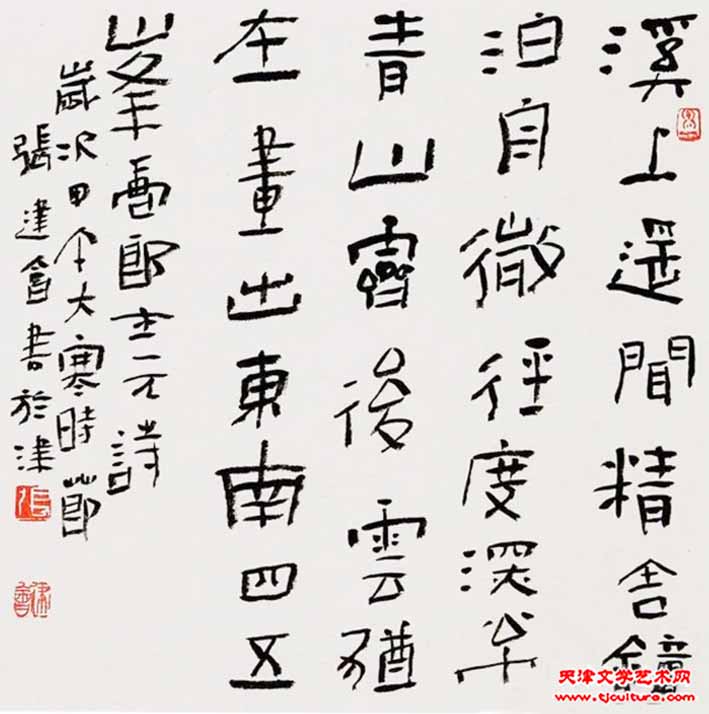 溪上遙聞精舍鐘
泊舟微徑度深松
青山霽後雲猶
在畫出東南四五
峯郎士元詩
歲次甲午大寒時節
張建會書於津
張
建會
天津文学艺术网
www.tjculture.com